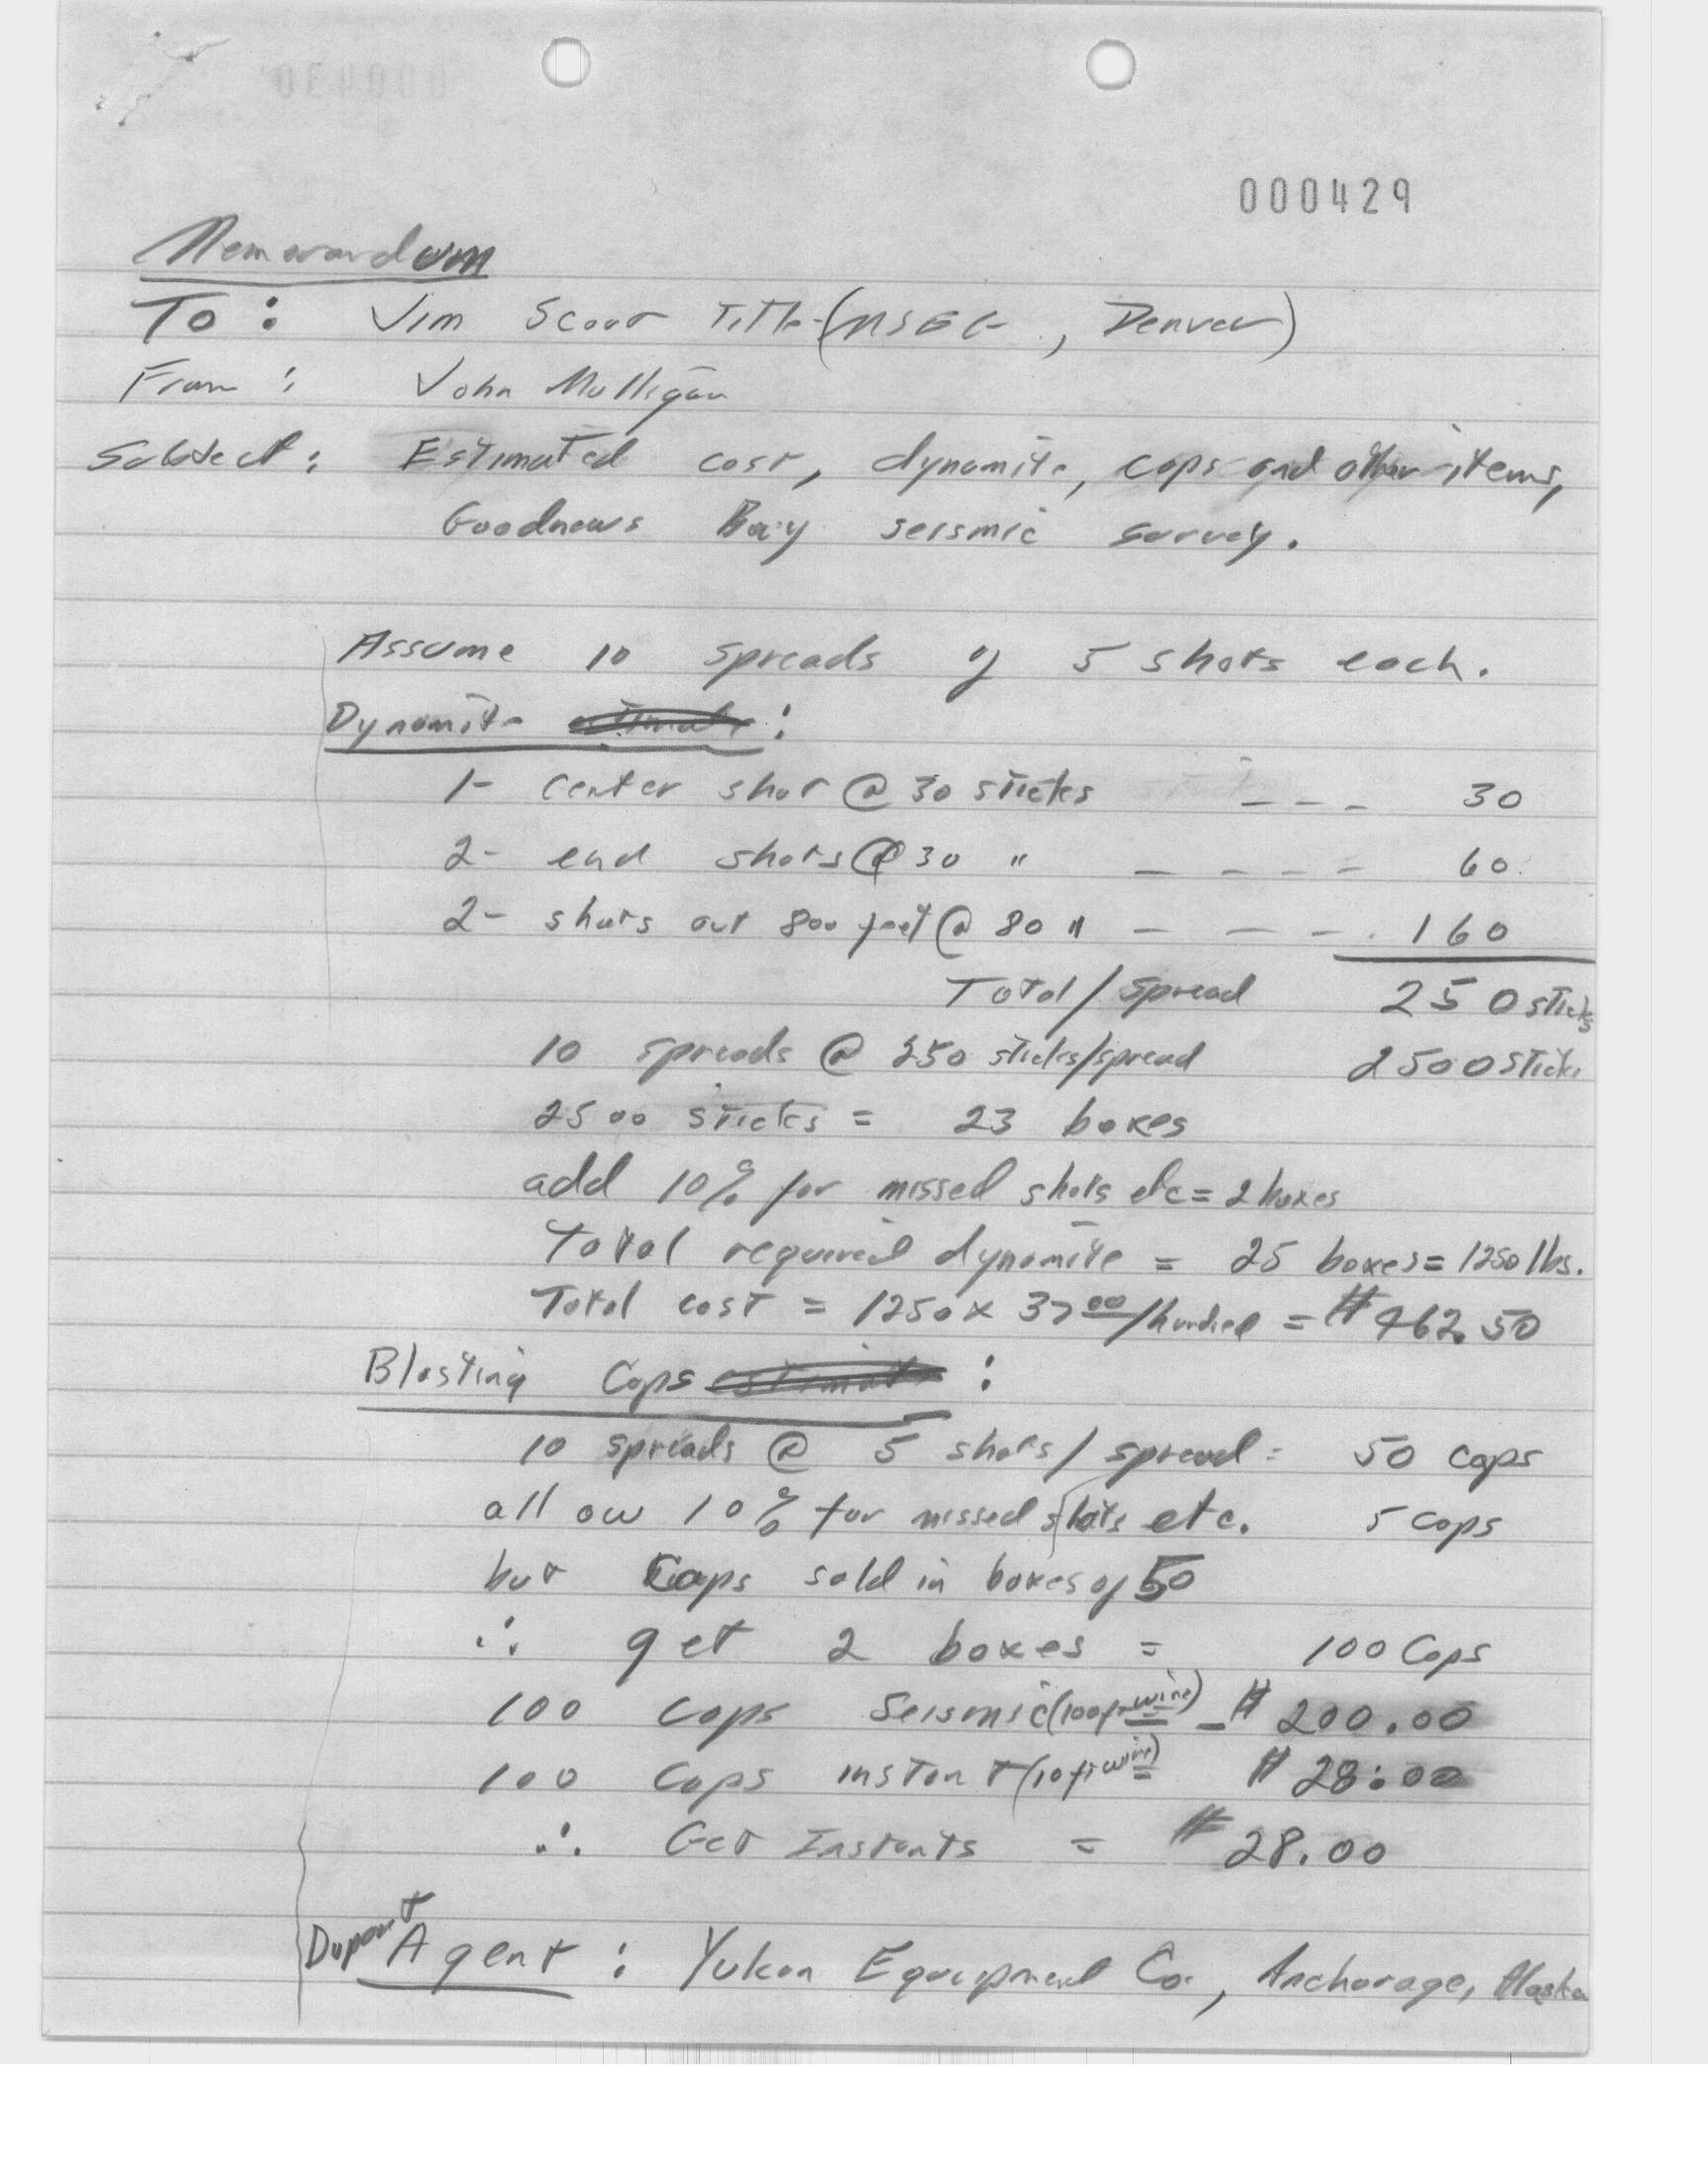 000429
Memorandum
To : Jim Scott Title (          , Denver)
From : John Mulligan
Subject : Estimated cost, dynamite, caps and other items,
Goodnews Bay seismic survey.
Assume 10 spreads of 5 shots each.
Dynamite estimate :
1- center shot @ 30 sticks - - - 30
2- end shots @ 30 " - - - - 60
2- shots out 800 feet @ 80 " - - - 160
Total / spread 250 sticks
10 spreads @ 250 sticks/spread 2500 sticks
2500 sticks = 23 boxes
add 10% for missed shots etc = 2 boxes
Total required dynamite = 25 boxes = 1250 lbs.
Total cost = 1250 x 37 00/hundred = $462.50
Blasting Caps estimate :
10 spreads @ 5 shots / spread = 50 caps
allow 10% for missed shots etc. 5 caps
but Caps sold in boxes of 50
∴ get 2 boxes = 100 Caps
100 caps Seismic (100 ft wire) - $200.00
100 Caps instant (10 ft wire) $28.00
∴ Get Instants = $28.00
Dupont Agent : Yukon Equipment Co., Anchorage, Alaska